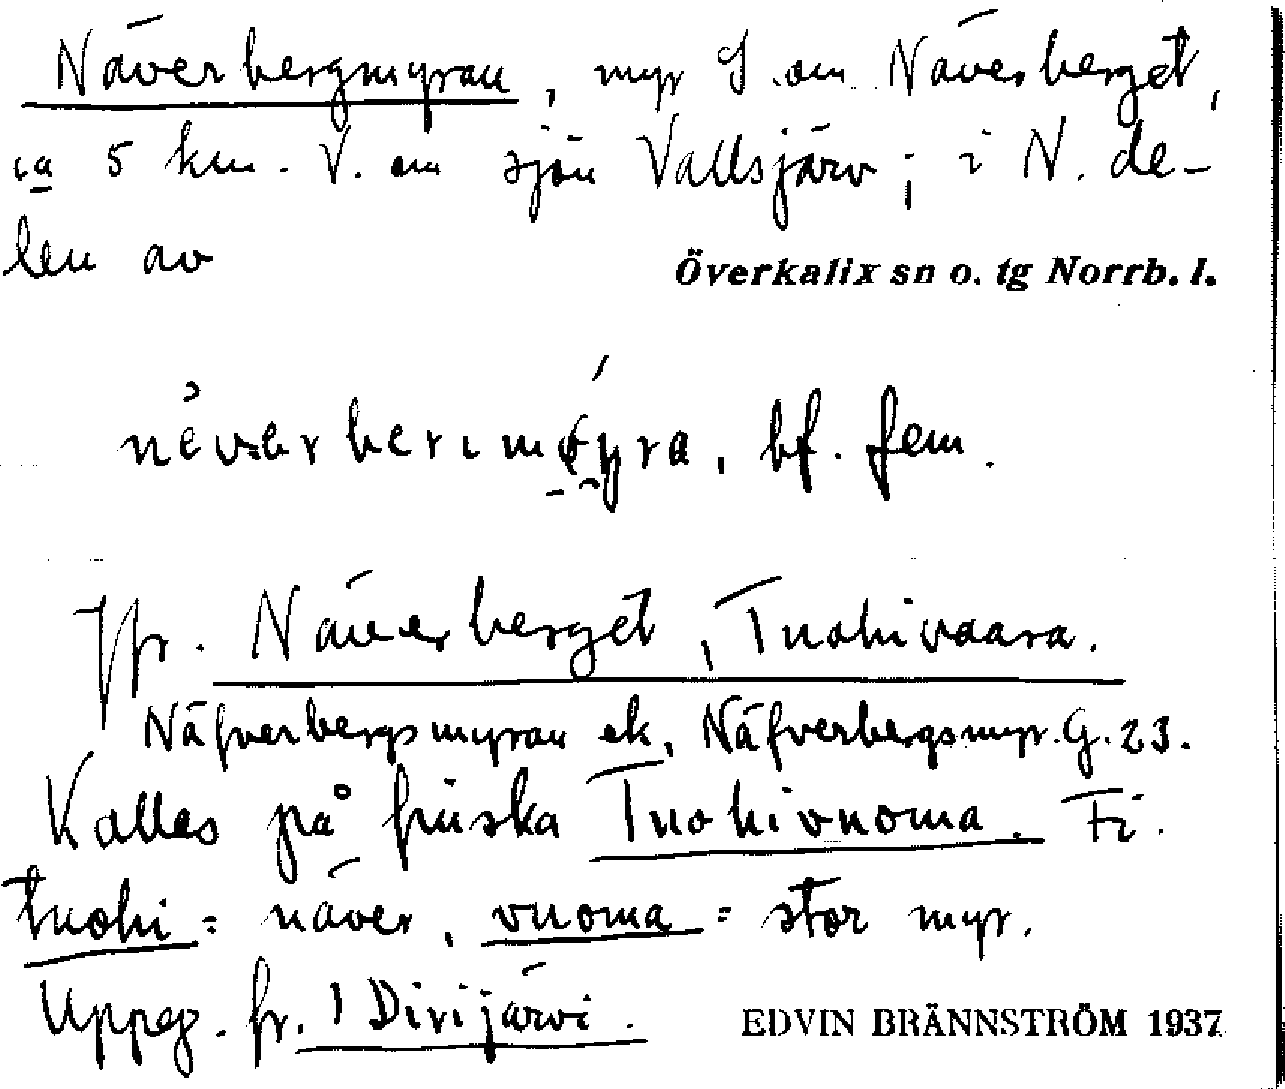 Näverbergmyran, myr S. om Näverberget,
ca 5 km. V. om sjön Vallsjärv; i N. de-
len av
Överkalix sn o. tg Norrb. l.
bf. fem.
Jfr. Näverberget, Tuohivaara.
Näfverbergsmyran ek, Näfverbergsmyr. G. 23.
Kallas på finska Tuohivuoma. Fi.
tuohi = näver, vuoma = stor myr.
Uppg. fr. 1 Divijärvi.
EDVIN BRÄNNSTRÖM 1937